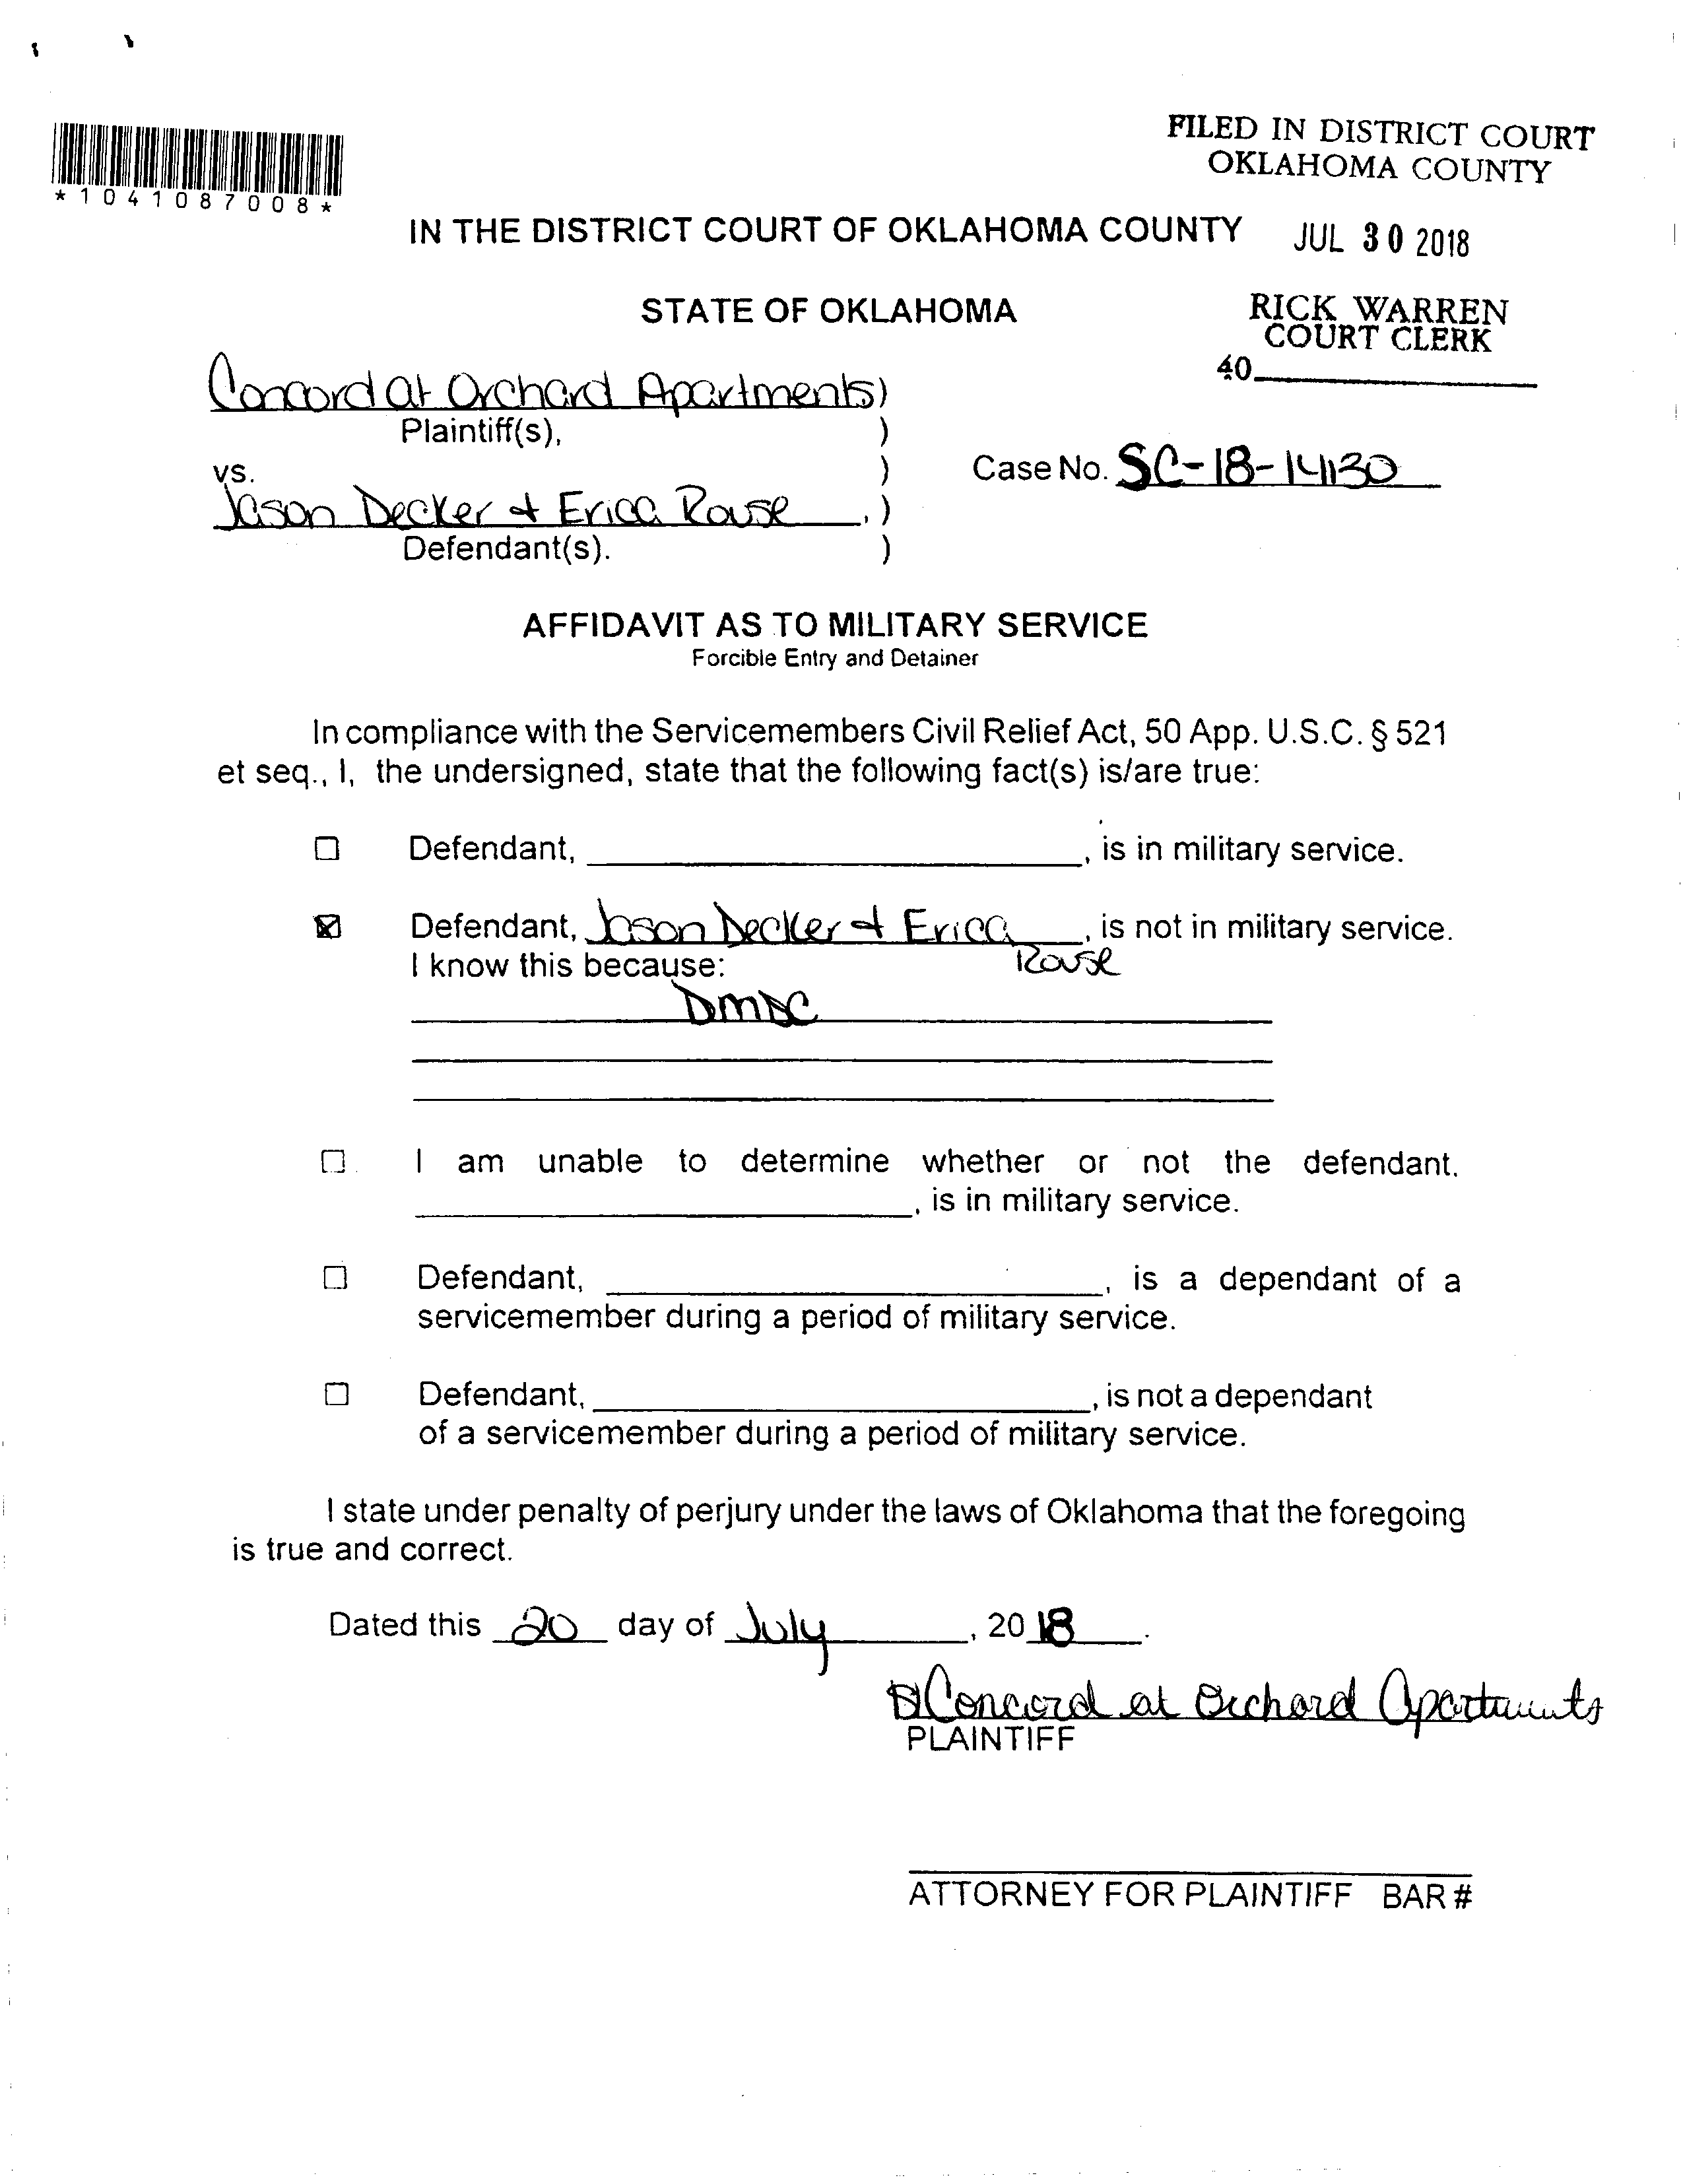 FILED IN DISTRICT COURT
OKLAHOMA COUNTY
*1041087008*
IN THE DISTRICT COURT OF OKLAHOMA COUNTY
JUL 30 2018
STATE OF OKLAHOMA
RICK WARREN
COURT CLERK
40
Concord at Orchard Apartments)
Plaintiff(s), )
vs. )
Case No. SC-18-14130
Jason Decker & Erica Rouse, )
Defendant(s). )
AFFIDAVIT AS TO MILITARY SERVICE
Forcible Entry and Detainer
In compliance with the Servicemembers Civil Relief Act, 50 App. U.S.C. § 521
et seq., I, the undersigned, state that the following fact(s) is/are true:
☐ Defendant, , is in military service.
☒ Defendant, Jason Decker & Erica, is not in military service.
Rouse
I know this because:
DMDC
☐ I am unable to determine whether or not the defendant.
, is in military service.
☐ Defendant, , is a dependant of a
servicemember during a period of military service.
☐ Defendant, , is not a dependant
of a servicemember during a period of military service.
I state under penalty of perjury under the laws of Oklahoma that the foregoing
is true and correct.
Dated this 20 day of July, 2018.
Concord at Orchard Apartments
PLAINTIFF
ATTORNEY FOR PLAINTIFF BAR #